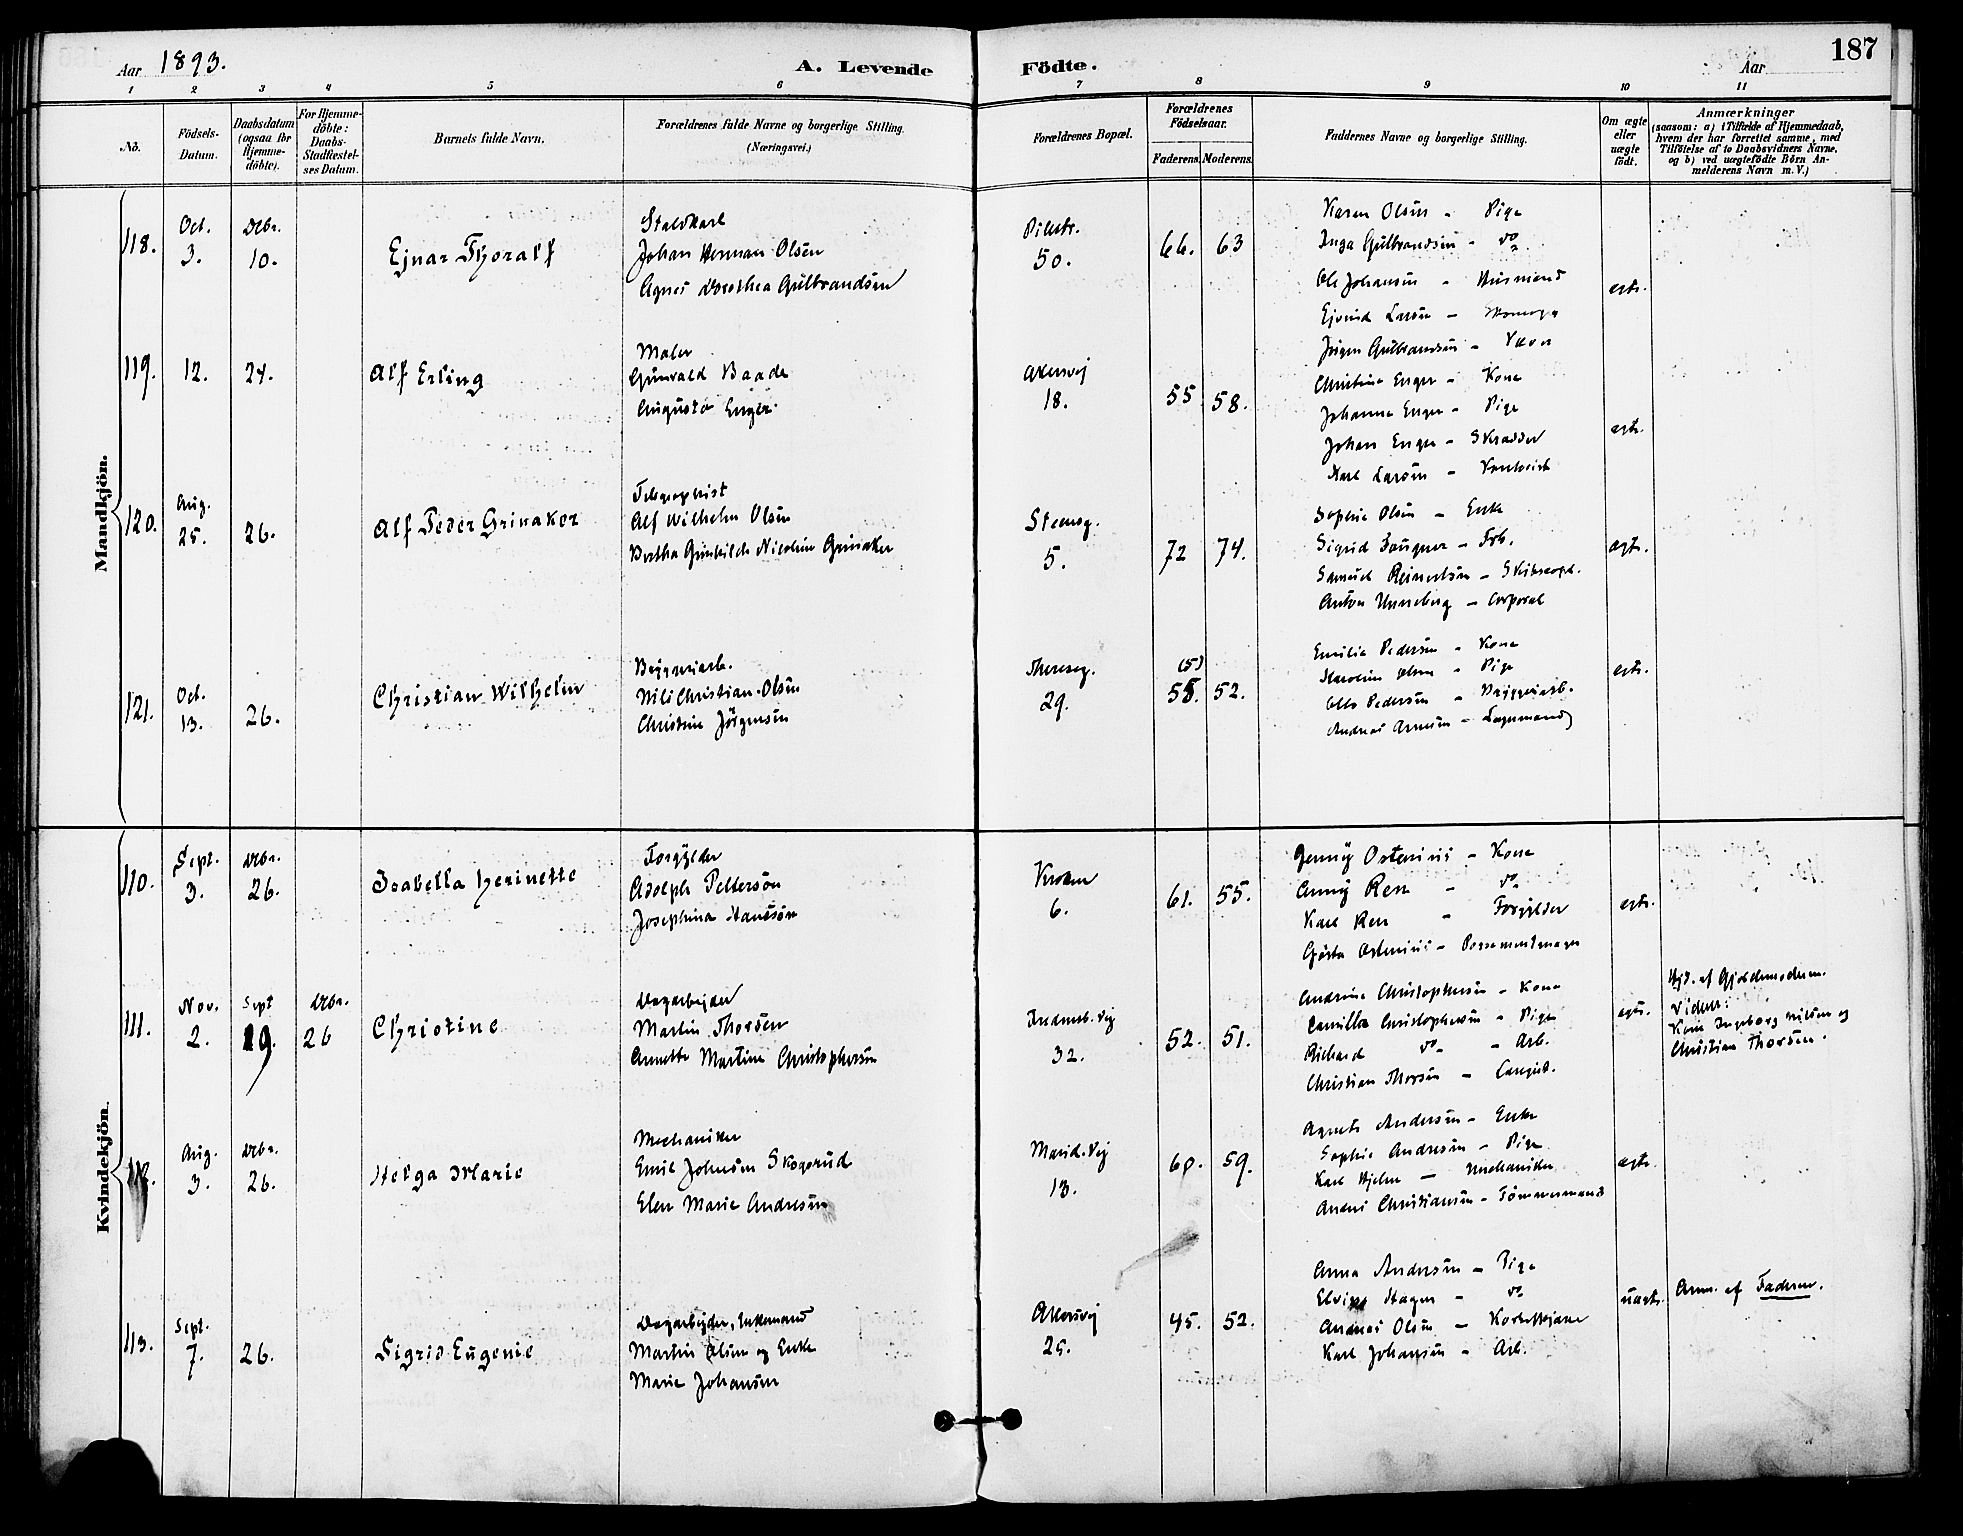 Aar 1893.
A. Levende Födte.
Aar
187
1 2 3 4 5 6 7 8 9 10 11
No.
Födsels-Datum.
Daabsdatum (ogsaa for Hjemmedöbte).
For Hjemmedöbte: Daabs-Stadfæstelses Datum.
Barnets fulde Navn.
Forældrenes fulde Navne og borgerlige Stilling. (Næringsvei.)
Forældrenes Bopæl.
Forældrenes Födselsaar.
Faderens. Moderens.
Faddernes Navne og borgerlige Stilling.
Om ægte eller uægte födt.
Anmærkninger
(saasom: a) i Tilfælde af Hjemmedaab,
hvem der har forrettet samme, med
Tilföielse af to Daabsvidners Navne,
og b) ved uægtefödte Börn Anmelderens Navn m. V.)
Mandkjön.
118. Oct. 3. Dcbr. 10. Ejnar Thoralf
Staldkarl
Johan Herman Olsen
Agnes Dorothea Gulbrandsen
Pilestr. 50. 66. 63
Karen Olsen - Pige
Inga Gulbrandsen - do
Ole Johansen - Husmand
Ejvind Larsen -
Jörgen Gulbrandsen -
ægte.
119. 12. 24. Alf Erling
Maler
Gunvald Baade
Augusta Enger.
Akersvej 18. 55 58.
Christine Enger - Kone
Johanna Enger - Pige
Johan Enger - Skrædder
Karl Larsen -
ægte.
120. Aug. 25. 26. Alf Peder Grinaker
Telegraphist
Alf Wilhelm Olsen
Bertha Gunhilde Nicoline Grinaker
Steensg. 5. 72 74.
Sophie Olsen - Enke
Sigrid - Frk.
Samuel Reinertsen -
Anton Unneberg - Corporal
ægte.
121. Oct. 13. 26. Christian Wilhelm
Bryggeriarb.
Nils Christian Olsen
Christine Jörgensen
Theresesg. 29. (5) 55. 52.
Emilie Pedersen - Kone
Karoline Olsen - Pige
Otto Pedersen - Bryggeriarb.
Andreas Arnesen - Lagsmand
ægte.
Kvindekjön.
110. Sept. 3. Dcbr. 26. Isabella Herinette
Forgylder
Adolph Pettersön
Josephina Hanssön
Kroken 6. 61. 55.
Jenny Ostenius - Kone
Anny Ren - do
Karl Ren - Forgylder
Gösta Ostenius - Possementmager
ægte.
111. Nov. 2. Sept 19. Dcbr. 26 Christine
Dagarbejder
Martin Thorsen
Annette Martine Christophersen
32. 52. 51.
Andrine Christophersen - Kone
Camilla Christophersen - Pige
Richard do - Arb.
Christian Thorsen -
ægte.
Hjd. af Gjordemoderen.
Vidner:
Kone Ingeborg Nilsen og
Christian Thorsen.
112. Aug. 3. Dcbr. 26. Helga Marie
Mechaniker
Emil Johnsen Skogerud
Elen Marie Andresen
Marid. Vej 13. 60. 59.
Agnete Andersen - Enke
Sophie Andresen - Pige
Karl Hjelm - Mechaniker
Anders Christiansen - Tömmermand
ægte.
113. Sept. 7. 26. Sigrid Eugenie
Dagarbejder, Enkemand
Martin Olsen og Enke
Marie Johansen
Akersvej 25. 45. 52.
Anna Andersen - Pige
Elvine Hagen - do
Andreas Olsen -
Karl Johansen - Arb.
uægte.
Anm. af Faderen.